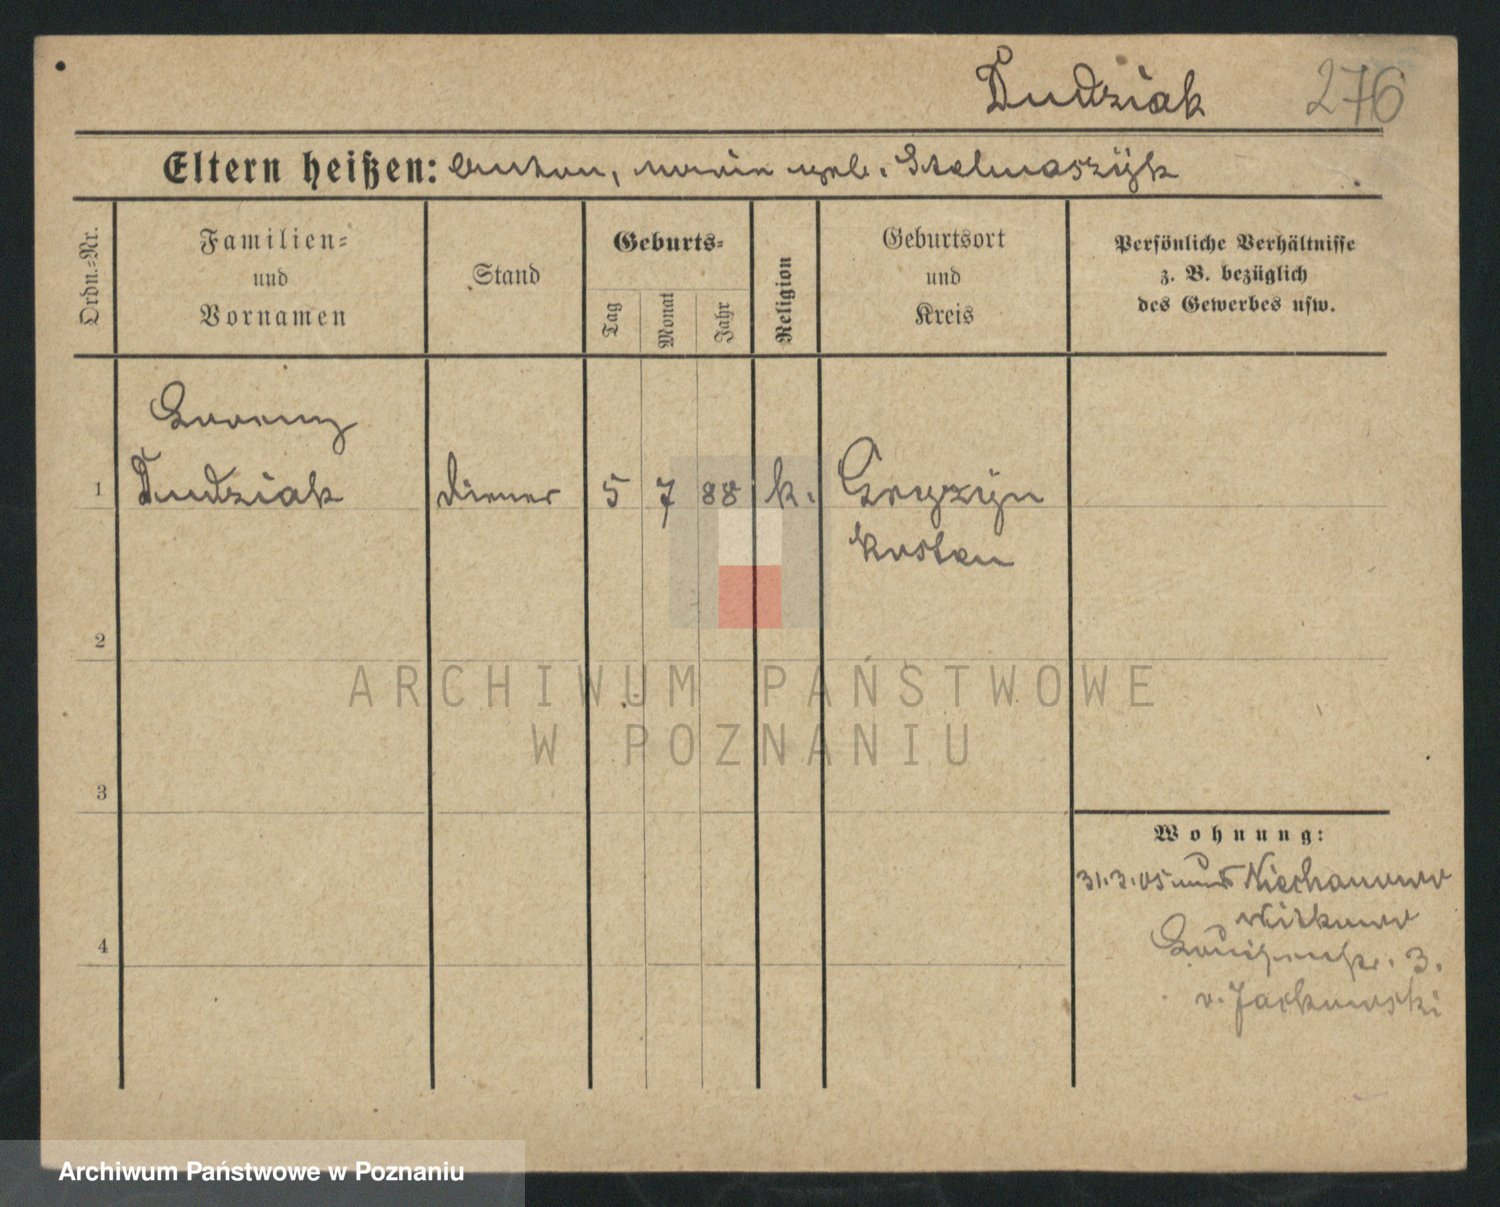 Dudziak 276
Eltern heißen: Anton, Marie geb. Stelmaszyk
Ordn.=Nr.
Familien=
und
Vornamen
Stand
Geburts=
Tag
Monat
Jahr
Religion
Geburtsort
und
Kreis
Persönliche Verhältnisse
z. B. bezüglich
des Gewerbes usw.
Lorenz
1 Dudziak Diener 5 7 88 k.
Kosten
2
3
4
Wohnung:
31.3.05 Niechanowo
Witkowo
3.
v. Jackowski
ARCHIWUM PAŃSTWOWE
W POZNANIU
Archiwum Państwowe w Poznaniu